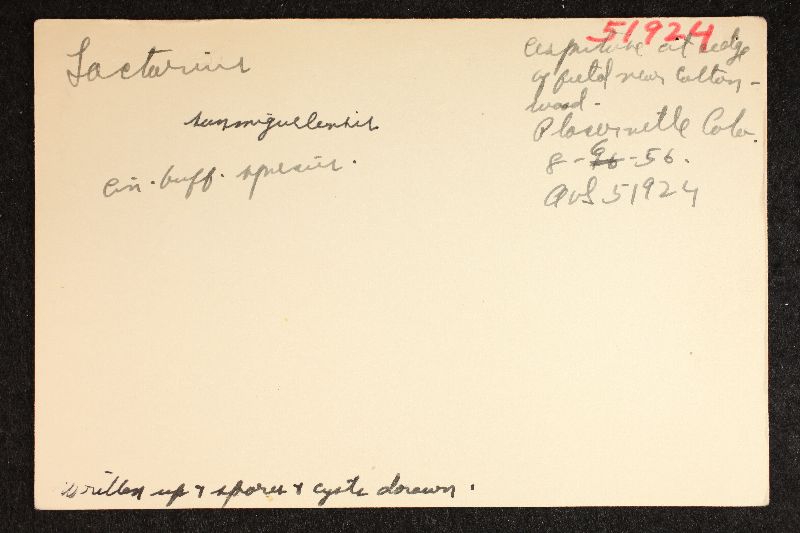 51924
Lactarius
sanmiguelensis
cin. buff. species.
at edge
of field near Cotton-
wood.
Placerville Colo.
8-26-56.
AHS 51924
Written up & spores & cysts drawn.